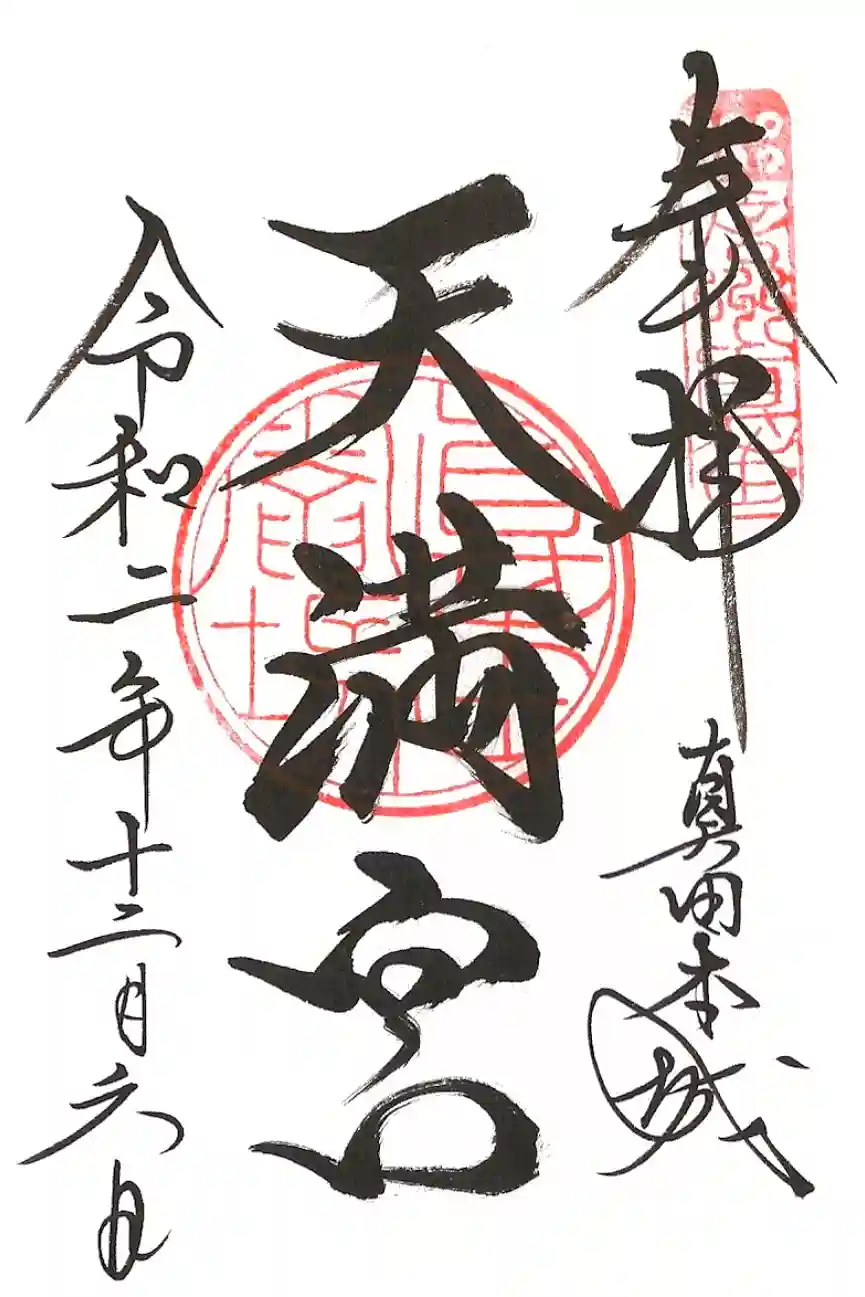 奉拝
真田本城
天満宮
令和二年十二月六日